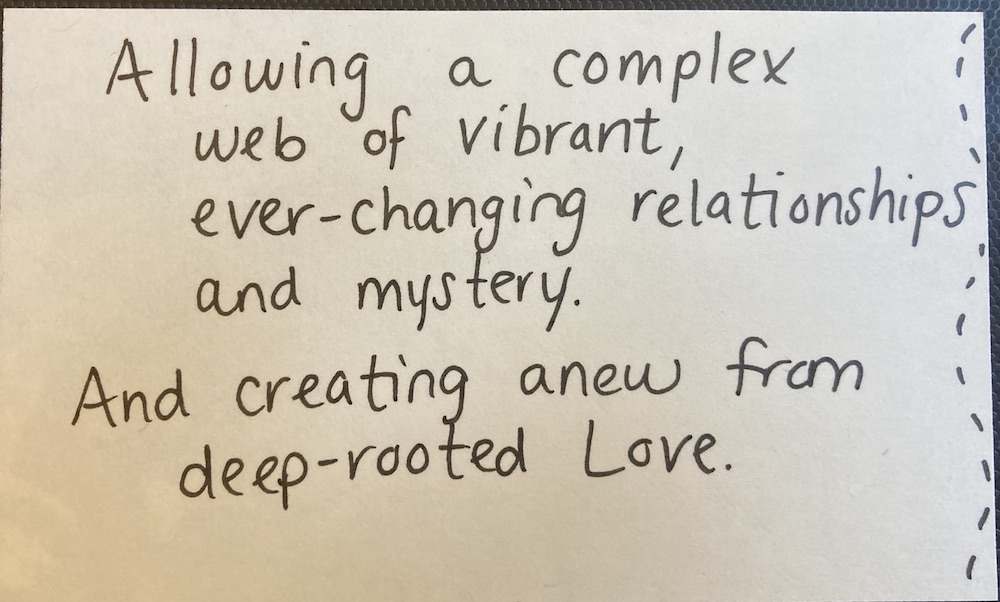 Allowing a complex
web of vibrant,
ever-changing relationships
and mystery.
And creating anew from
deep-rooted Love.